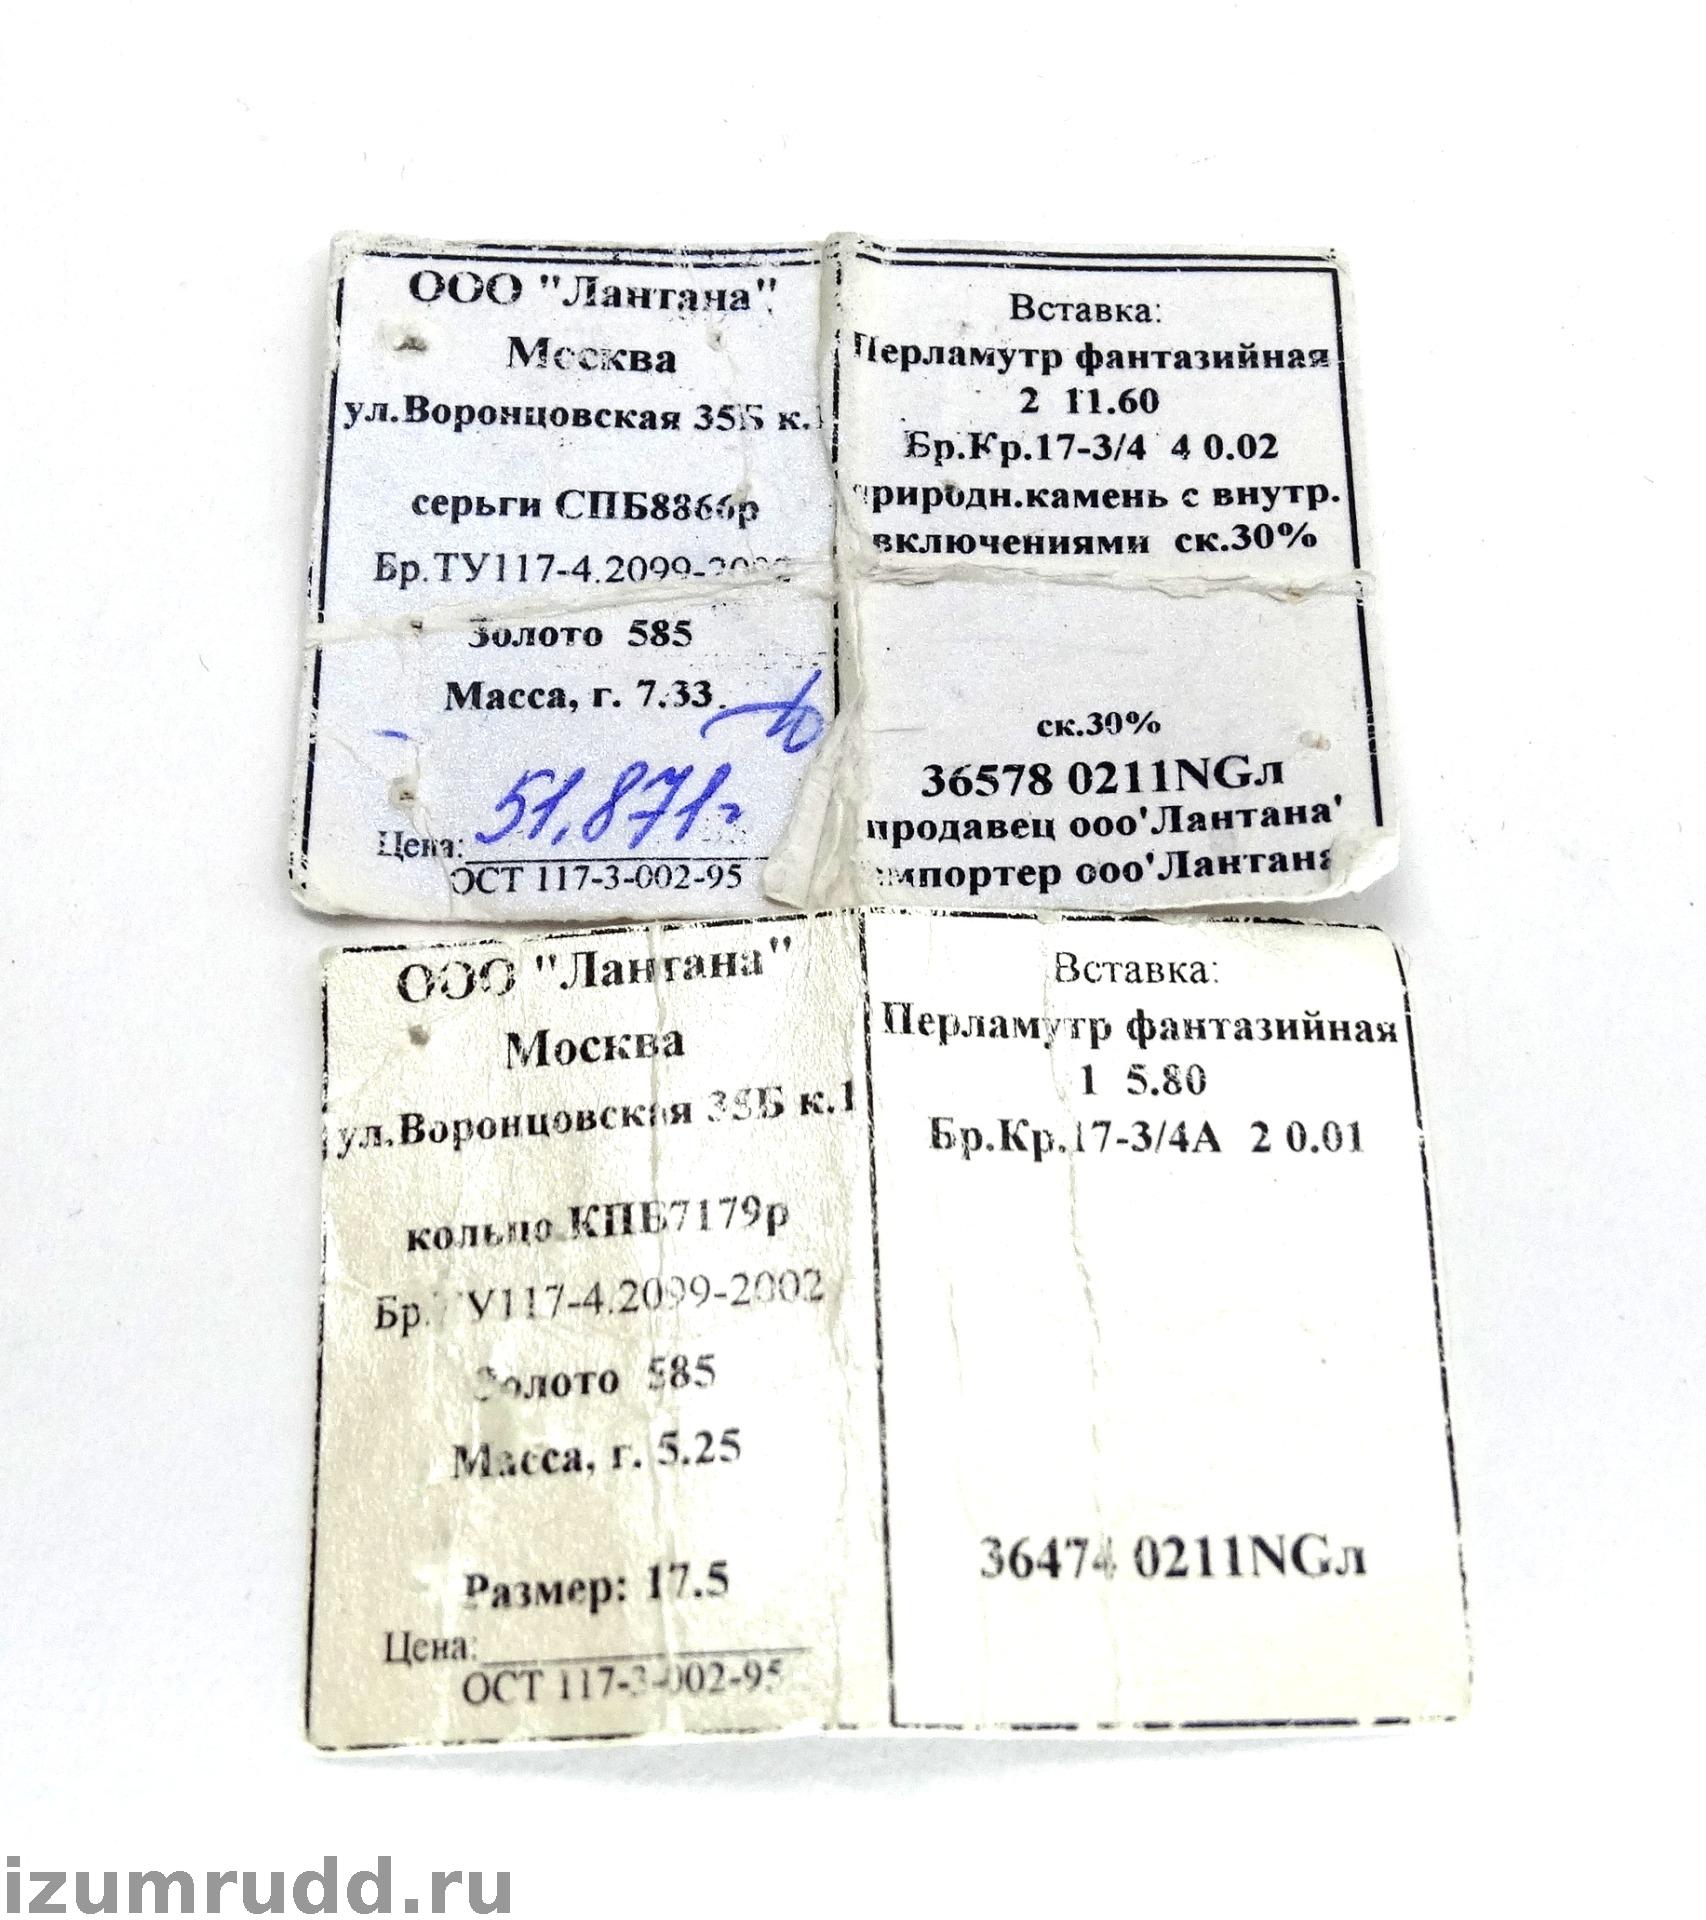 ООО "Лантана"
Москва
ул.Воронцовская 35Б к.1
серьги СПБ8866р
Бр.ТУ117-4.2099-2002
Золото 585
Масса, г. 7.33
51.871
Цена:
ОСТ 117-3-002-95
Вставка:
Перламутр фантазийная
2 11.60
Бр.Кр.17-3/4 4 0.02
природн.камень с внутр.
включениями ск.30%
ск.30%
36578 0211NGл
продавец ооо'Лантана'
импортер ооо'Лантана
ООО "Лантана"
Москва
ул.Воронцовская 35Б к.1
кольцо КПБ7179р
Бр.ТУ117-4.2099-2002
Золото 585
Масса, г. 5.25
Размер: 17.5
Цена:
ОСТ 117-3-002-95
Вставка:
Перламутр фантазийная
1 5.80
Бр.Кр.17-3/4А 2 0.01
36474 0211NGл
izumrudd.ru